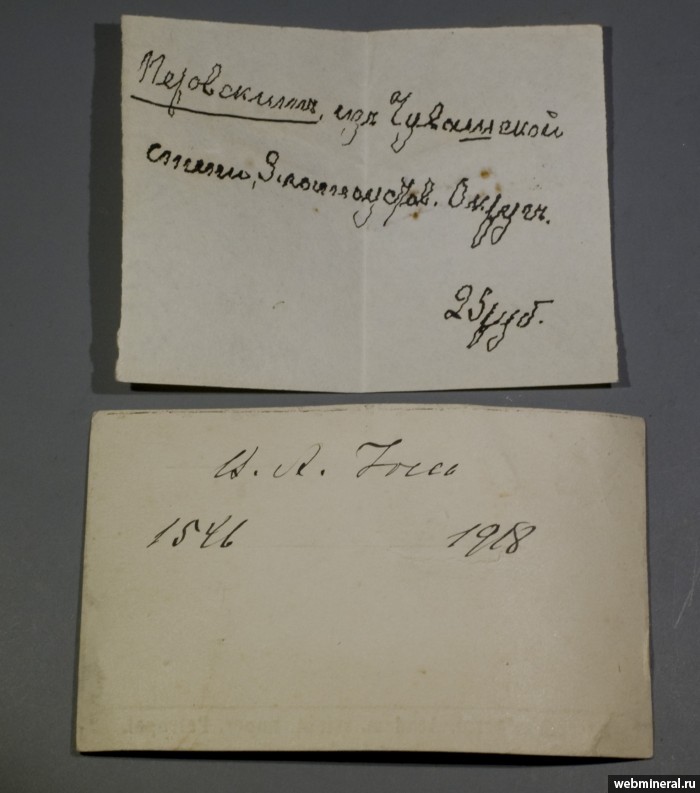 Перовскитъ, изъ Чувашской
степи, Златоустов. Округъ.
25 руб.
И. А.
1546 1918
webmineral.ru